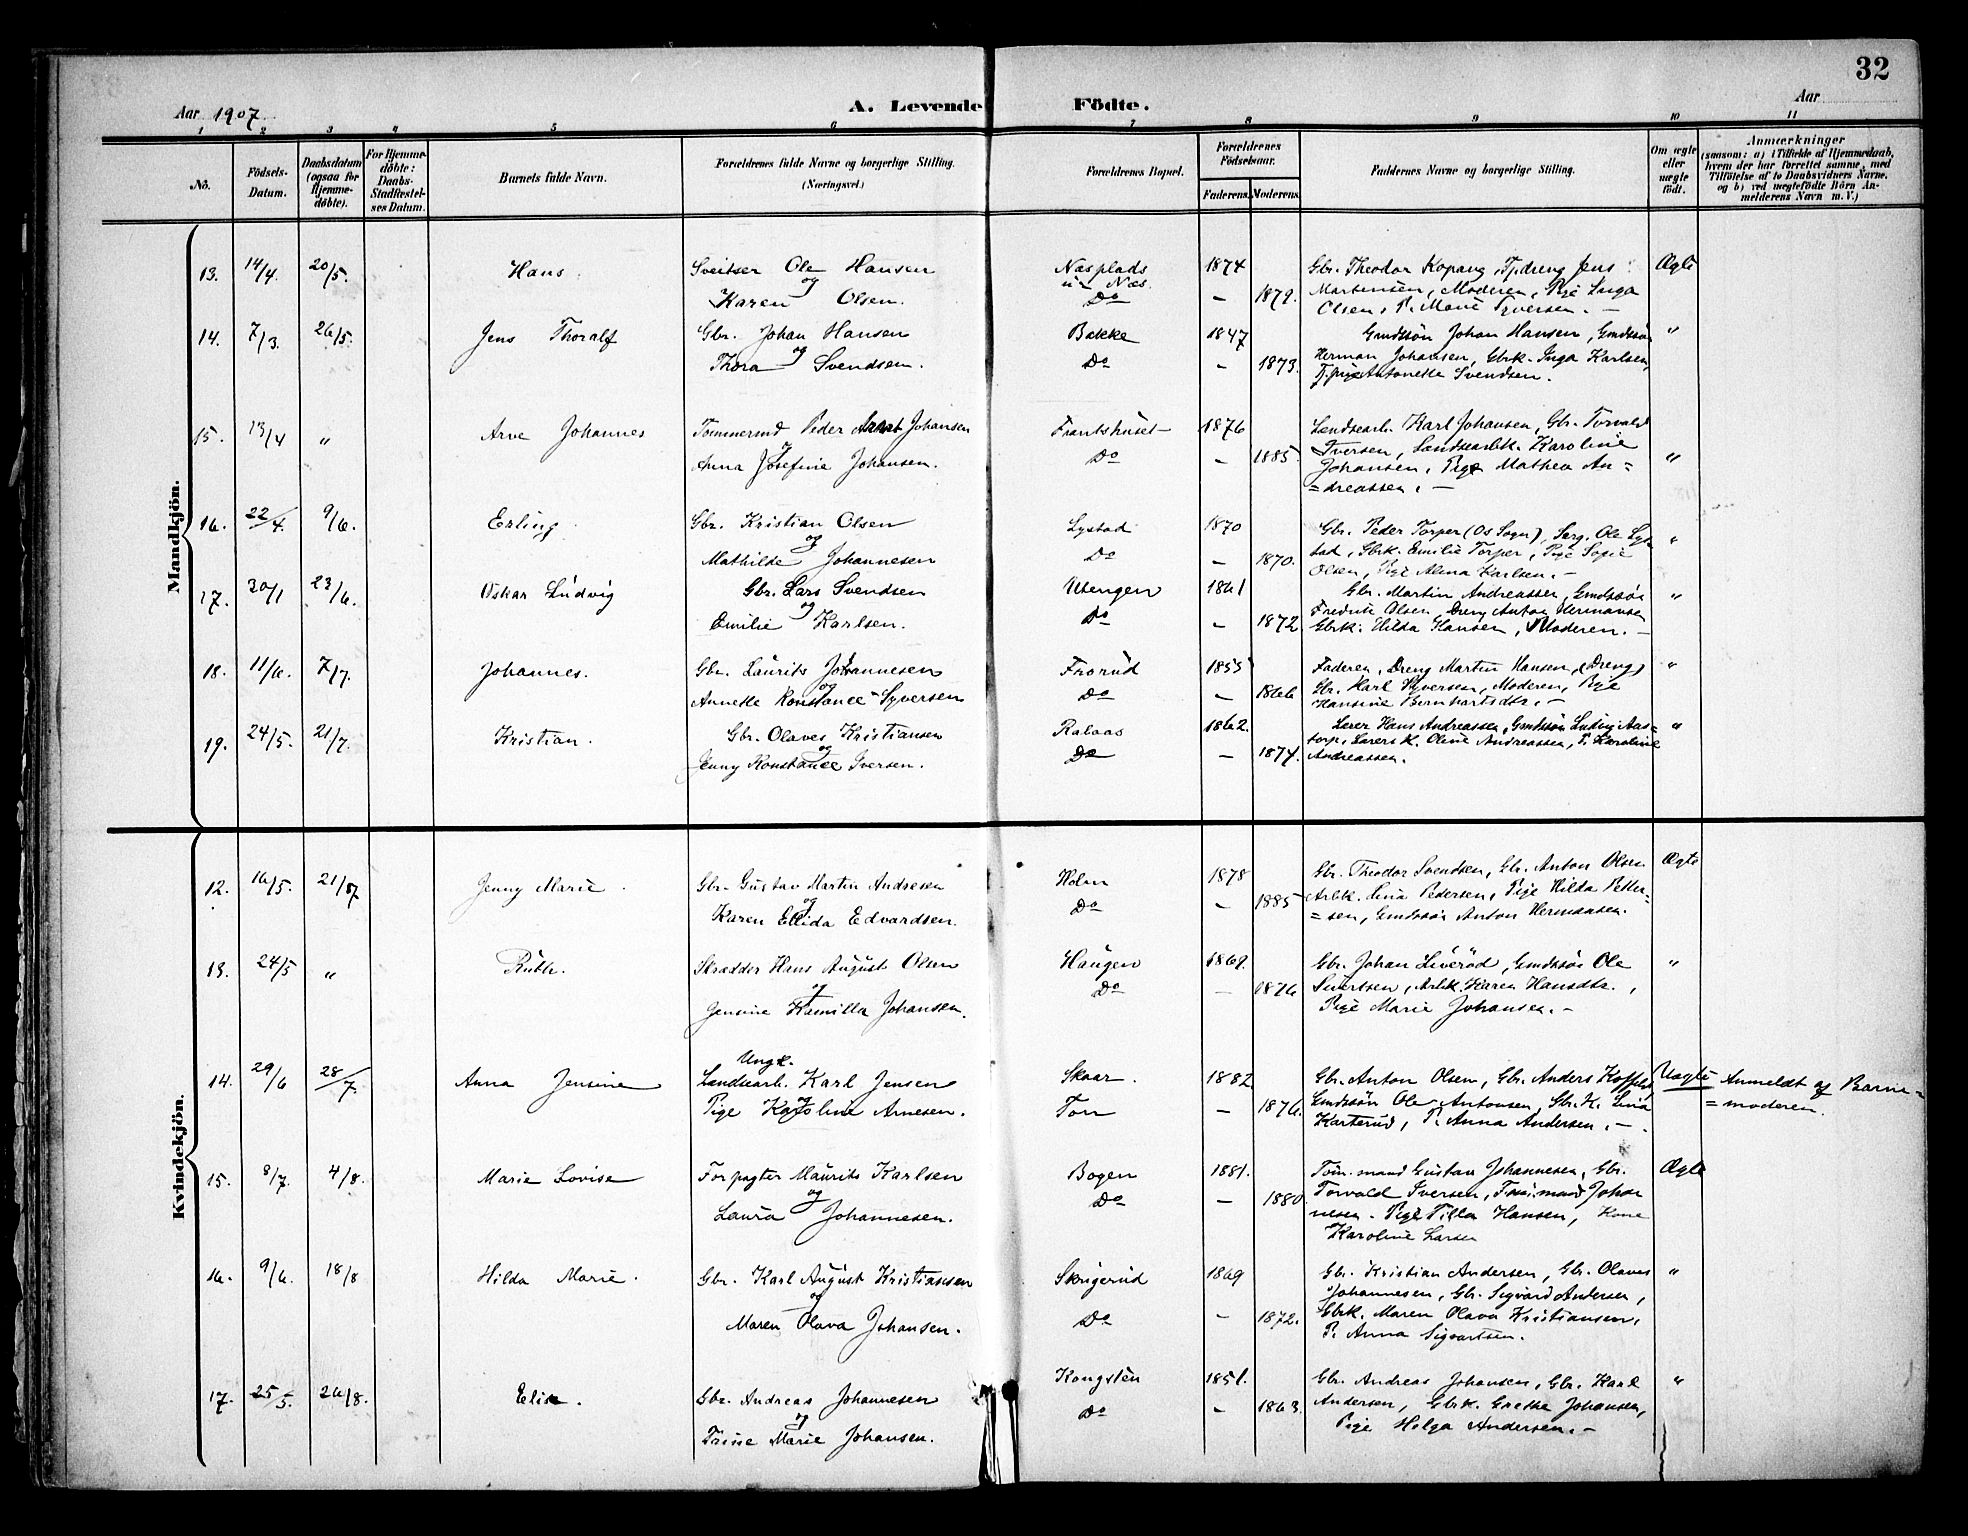 32
Aar 1907
A. Levende Födte.
Aar
1 2 3 4 5 6 7 8 9 10 11
No.
Födsels-Datum.
Daabsdatum (ogsaa for Hjemme-döbte).
For Hjemme-döbte: Daabs-Stadfæstelses Datum.
Barnets fulde Navn.
Forældrenes fulde Navne og borgerlige Stilling. (Næringsvei.)
Forældrenes Bopæl.
Forældrenes Födselsaar.
Faderens. Moderens.
Faddernes Navne og borgerlige Stilling.
Om ægte eller uægte födt.
Anmærkninger
(saasom: a) i Tilfælde af Hjemmedaab, hvem der har forrettet samme, med Tilföielse af to Daabsvidners Navne, og b) ved uægtefödte Börn Anmelderens Navn m. V.)
Mandkjön.
13. 14/4. 20/5. Hans. Sveitser Ole Hansen Næsplads 1874 Gbr. Theodor Kopang, Tj.dreng Jens Ægte
og u. Næs.
Karen Olsen. Do — 1879. Martinsen, Moderen, Pige Inga
Olsen, P. Marie Syversen. —
14. 7/3. 26/5. Jens Thoralf Gbr. Johan Hansen Bakke 1847 Gmdssön Johan Hansen, Gmdssön "
og
Thora Svendsen. Do — 1873. Herman Johansen, Gbrk. Inga Karlsen,
T.pige Antonette Svendsen.
15. 13/4 " Arve Johannes Tömmermd Peder Johansen Frantshuset 1876 Landsearb. Karl Johansen, Gbr. Torvald
og
Anna Josefine Johansen. Do — 1885. Iversen, Landsearbk. Karoline
Johansen, Pige Mathea An= "
=dreassen. —
16. 22/4. 9/6. Erling. Gbr. Kristian Olsen Lystad 1870 Gbr. Peder Torper (Os Sogn), Serg. Ole Lys-
og
Mathilde Johannesen Do — 1870. tad, Gbrk. Emilie Torper, Pige Sofie "
Olsen, Pige Alma Karlsen. —
17. 30/1 23/6. Oskar Ludvig Gbr. Lars Svendsen Utengen 1861 Gbr. Martin Andreassen, Gmdssön "
og
Emilie Karlsen. Do — 1872 Fredrik Olsen, Dreng Anton Hermansen
Gbrk. Hilda Hansen, Moderen. —
18. 11/6. 7/7. Johannes. Gbr. Laurits Johannesen Frorud 1855 Faderen, Dreng Martin Hansen, (Dreng) "
og
Annette Konstance Syversen Do — 1866 Gbr. Karl Syversen, Moderen, Pige
Hansine Bernhartsdtr. —
19. 24/5. 21/7. Kristian. Gbr. Olaves Kristiansen Ralaas 1862. Lærer Hans Andreassen, Gmdssön Ludvig Aas- "
og
Jenny Konstance Iversen. Do — 1874. torp, Lærersk. Oline Andreassen, P. Karoline
Andreassen.
Kvindekjön.
12. 16/5. 21/07 Jenny Marie. Gbr. Gustav Martin Andresen Holm 1878 Gbr. Theodor Svendsen, Gbr. Anton Olsen Ægte
og
Karen Elida Edvardsen. Do — 1885 Arbk. Lina Pedersen, Pige Hilda Petter=
=sen, Gmdssön Anton Hermansen.
13. 24/5 " Ruth. Skrædder Hans August Olsen Haugen 1869. Gbr. Johan Liveröd, Gmdssön Ole "
og
Jensine Kamilla Johansen. Do — 1876 Sivertsen, Arbk. Karen Hansdtr.,
Pige Marie Johansen. —
14. 29/6 28/7. Anna Jensine Ungk. Landsearb. Karl Jensen Skaar. 1882 Gbr. Anton Olsen, Gbr. Anders Uægte Anmeldt af Barne=
og
Pige Karoline Arnesen. Ton — 1876. Gmdssön Ole Antonsen, Gbr.K. Lina =moderen.
Karterud, P. Anna Andersen. —
15. 8/7. 4/8. Marie Lovise Forpagter Maurits Karlsen Bogen 1881. Töm.mand Gustav Johannesen, Gbr. Ægte
og
Laura Johannesen. Do — 1880 Torvald Iversen, Johan
nesen. Pige Tilla Hansen, Kone
Karoline Larsen
16. 9/6. 18/8 Hilda Marie. Gbr. Karl August Kristiansen Skrigerud 1869 Gbr. Kristian Andersen, Gbr. Olaves "
og
Maren Olava Johansen. Do — 1872. Johannesen, Gbr. Sigvard Andersen,
Gbrk. Maren Olava Kristiansen,
P. Anna Sigvartsen.
17. 25/5. 26/8. Elise. Gbr. Andreas Johannesen Kongsten 1851. Gbr. Andreas Johansen, Gbr. Karl "
og
Trine Marie Johansen. Do — 1863. Andersen, Gbrk. Grethe Johansen,
Pige Helga Andersen. —